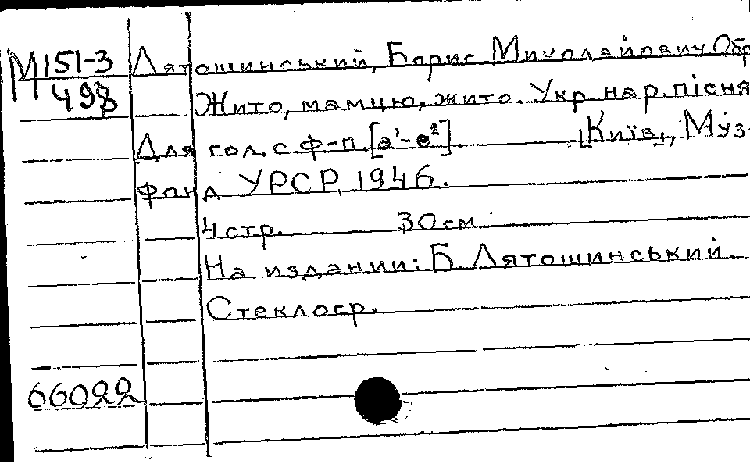 М 151-3 Лятошинський, Борис Миколайович Обр
498 Жито, мамцю, жито. Укр. нар. пісня
Для гол. с ф-п. [a¹-e²]. [Київ], Муз.
фонд УРСР, 1946.
4 стр. 30 см
На издании: Б. Лятошинський.
Стеклогр.
66022